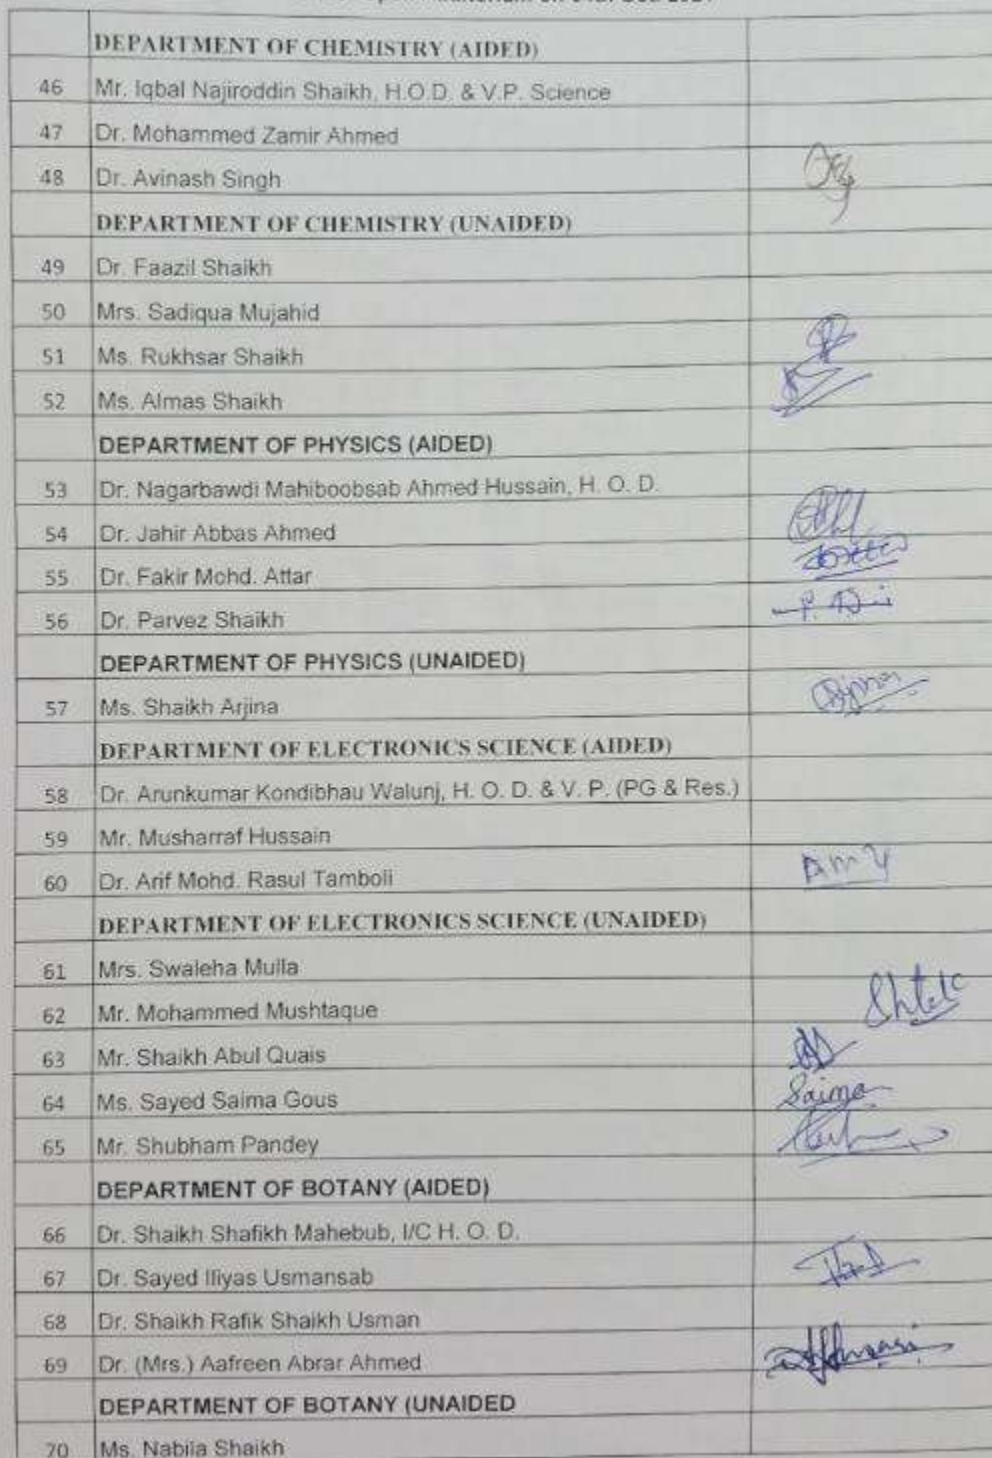 DEPARTMENT OF CHEMISTRY (AIDED)
46 Mr. Iqbal Najiroddin Shaikh, H.O.D. & V.P. Science
47 Dr. Mohammed Zamir Ahmed
48 Dr. Avinash Singh
DEPARTMENT OF CHEMISTRY (UNAIDED)
49 Dr. Faazil Shaikh
50 Mrs. Sadiqua Mujahid
51 Ms. Rukhsar Shaikh
52 Ms. Almas Shaikh
DEPARTMENT OF PHYSICS (AIDED)
53 Dr. Nagarbawdi Mahiboobsab Ahmed Hussain, H. O. D.
54 Dr. Jahir Abbas Ahmed
55 Dr. Fakir Mohd. Attar
56 Dr. Parvez Shaikh
DEPARTMENT OF PHYSICS (UNAIDED)
57 Ms. Shaikh Arjina
DEPARTMENT OF ELECTRONICS SCIENCE (AIDED)
58 Dr. Arunkumar Kondibhau Walunj, H. O. D. & V. P. (PG & Res.)
59 Mr. Musharraf Hussain
60 Dr. Arif Mohd. Rasul Tamboli
DEPARTMENT OF ELECTRONICS SCIENCE (UNAIDED)
61 Mrs. Swaleha Mulla
62 Mr. Mohammed Mushtaque
63 Mr. Shaikh Abul Quais
64 Ms. Sayed Saima Gous Saima
65 Mr. Shubham Pandey
DEPARTMENT OF BOTANY (AIDED)
66 Dr. Shaikh Shafikh Mahebub, I/C H. O. D.
67 Dr. Sayed Iliyas Usmansab
68 Dr. Shaikh Rafik Shaikh Usman
69 Dr. (Mrs.) Aafreen Abrar Ahmed
DEPARTMENT OF BOTANY (UNAIDED
70 Ms. Nabila Shaikh